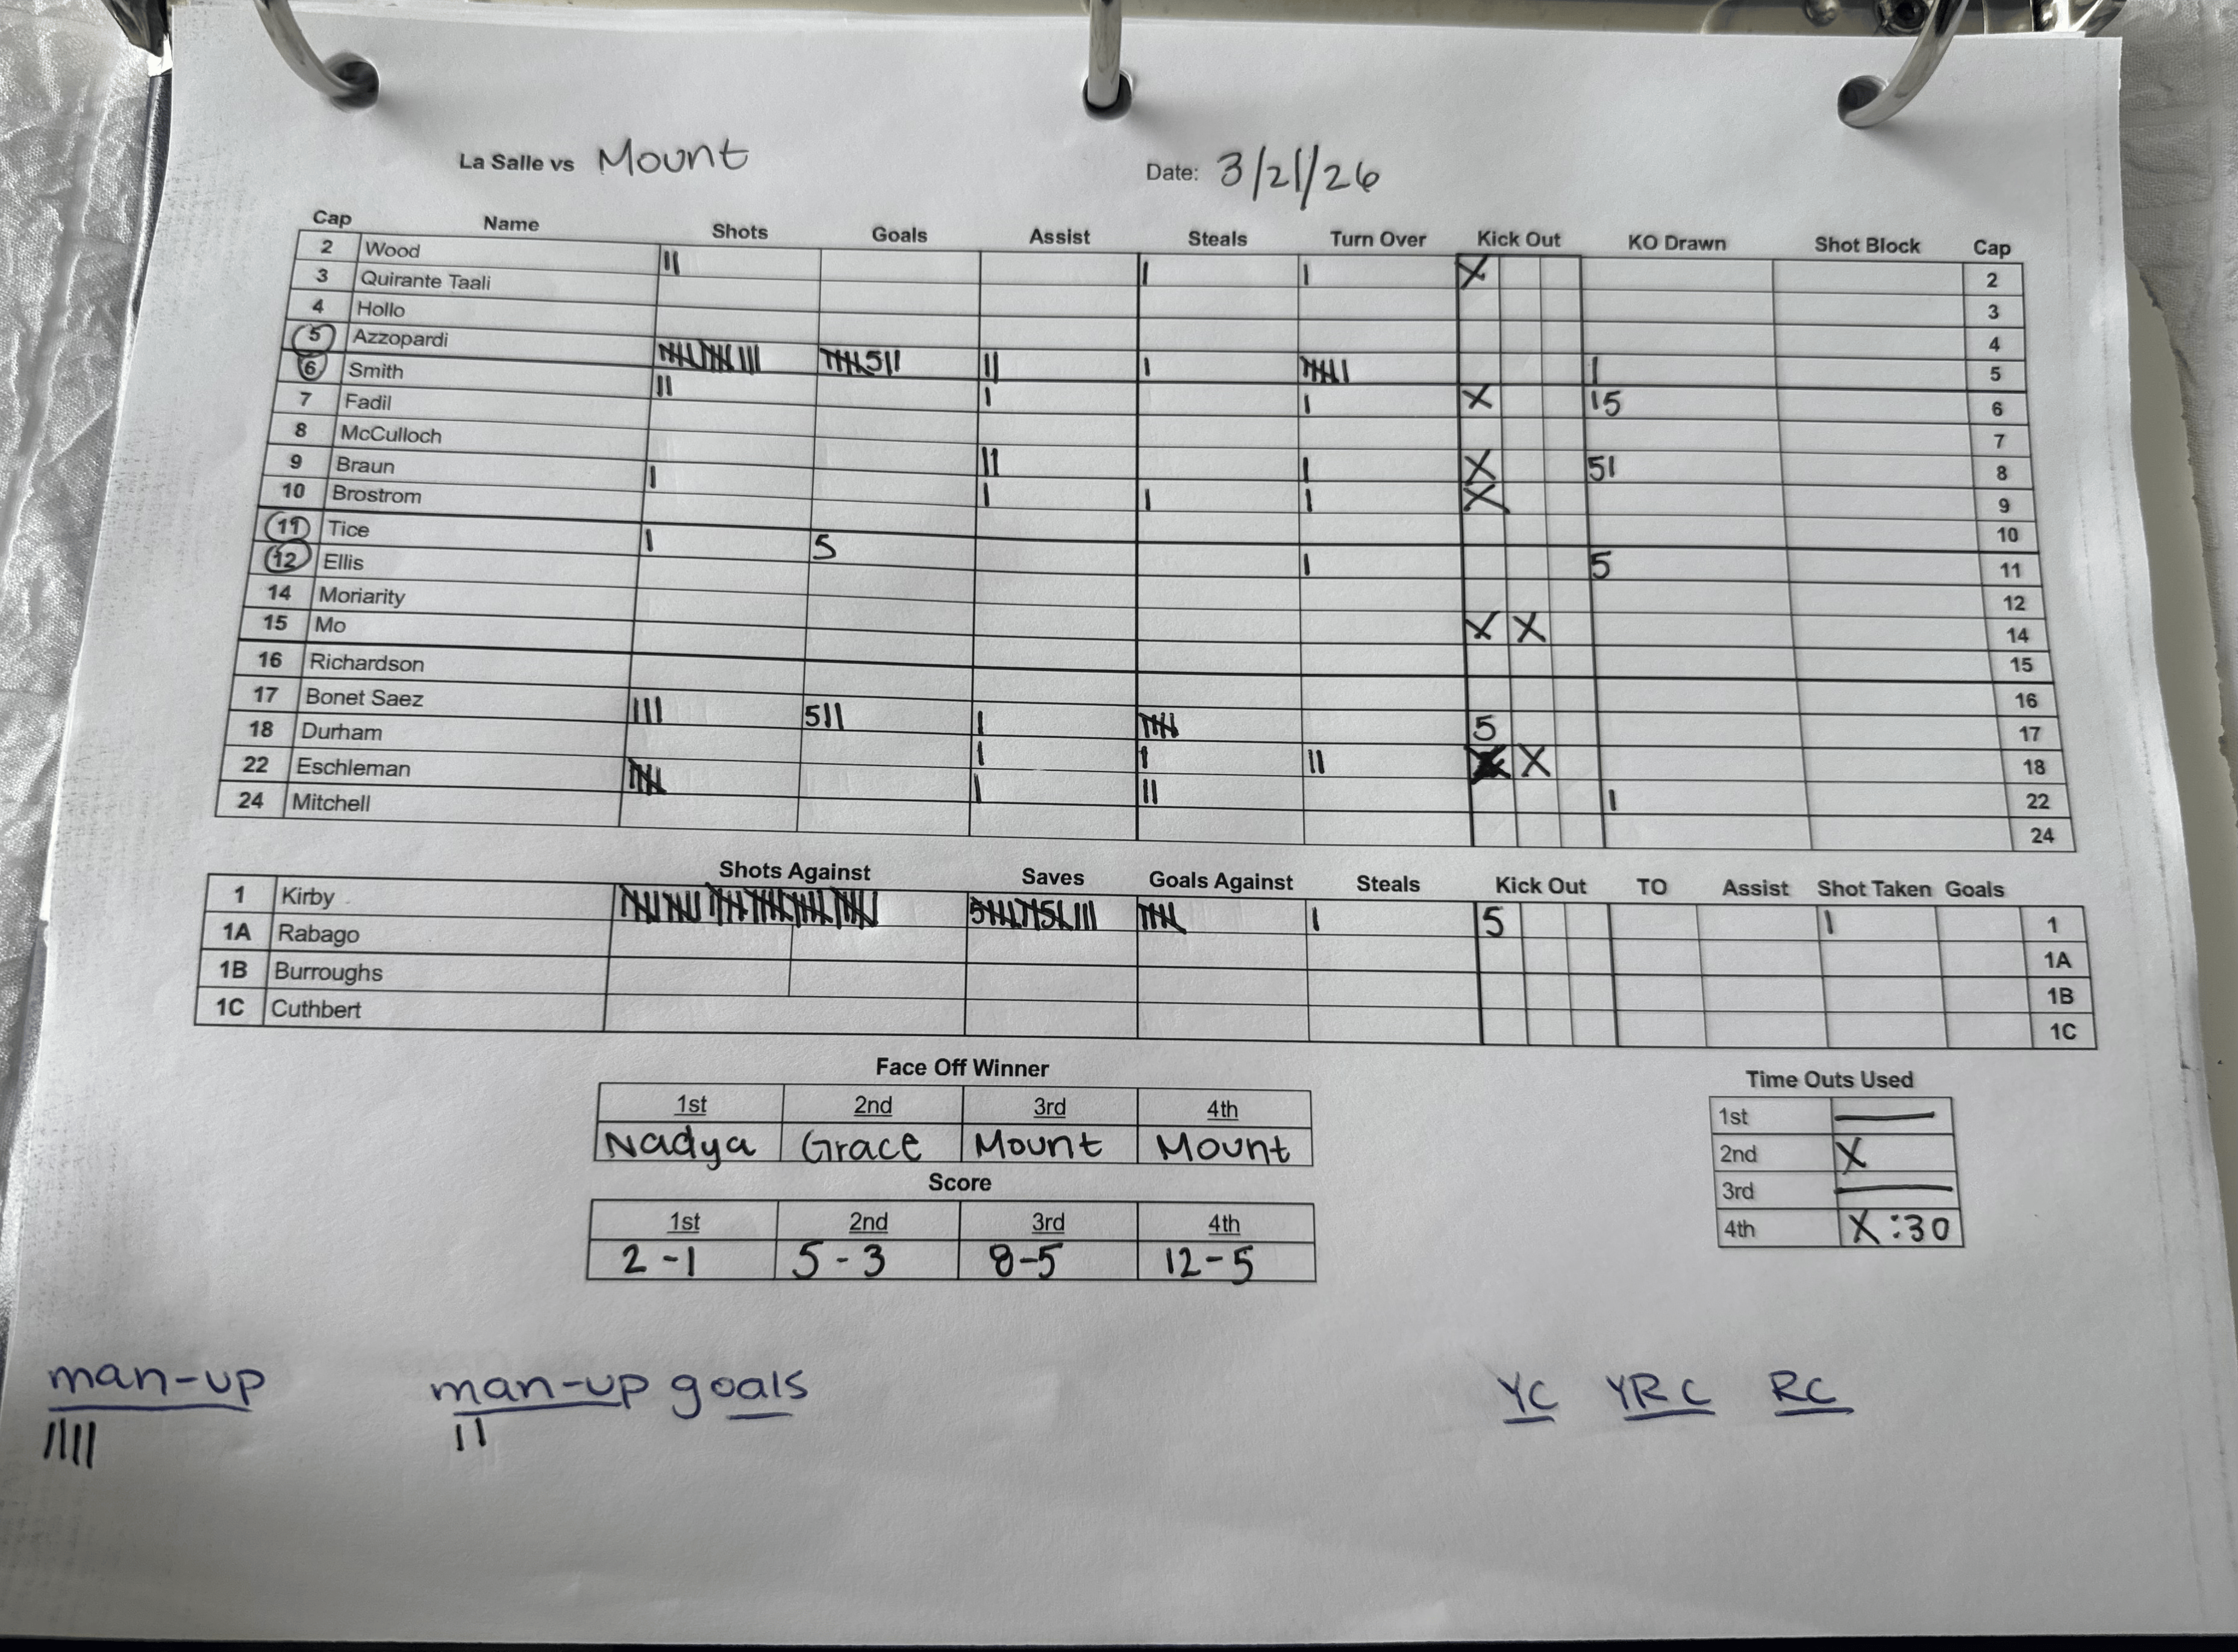 La Salle vs Mount Date: 3/21/26
Cap Name Shots Goals Assist Steals Turn Over Kick Out KO Drawn Shot Block Cap
2 Wood || | | X 2
3 Quirante Taali 3
4 Hollo 4
5 Azzopardi |||| |||| ||| |||| 5 || || | |||| | | 5
6 Smith || | | X | 5 6
7 Fadil 7
8 McCulloch || | X 5 | 8
9 Braun | | | | X 9
10 Brostrom 10
11 Tice | 5 | 5 11
12 Ellis 12
14 Moriarity X X 14
15 Mo 15
16 Richardson 16
17 Bonet Saez ||| 5 || | |||| 5 17
18 Durham | | || X 18
22 Eschleman |||| | || | 22
24 Mitchell 24
Shots Against Saves Goals Against Steals Kick Out TO Assist Shot Taken Goals
1 Kirby |||| | 5 | 1
1A Rabago 1A
1B Burroughs 1B
1C Cuthbert 1C
Face Off Winner
1st 2nd 3rd 4th
Nadya Grace Mount Mount
Score
1st 2nd 3rd 4th
2-1 5-3 8-5 12-5
Time Outs Used
1st
2nd X
3rd
4th X :30
man-up man-up goals YC YRC RC
|||| ||